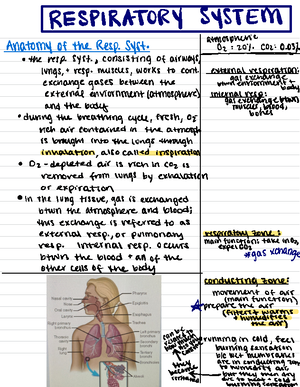 RESPIRATORY SYSTEM
Anatomy of the Resp. Syst.
• the resp. syst., consisting of airways,
lungs, + resp. muscles, works to cont.
exchange gases between the
external enviornment (atmosphere)
and the body
• during the breathing cycle, fresh, O2
rich air contained in the atmosph
is brought into the lungs through
inhalation, also called inspiration
• O2-depleted air is rich in CO2 is
removed from lungs by exhalation
or expiration
• In the lung tissue, gas is exchanged
btwn the atmosphere and blood;
this exchange is referred to as
external resp., or pulmonary
resp. Internal resp. occurs
btwn the blood + all of the
other cells of the body
atmosphere
O2: 20% CO2: 0.03%
external respiration:
gas exchange
btwn enviornment +
body
internal resp:
gas exchange btwn
muscles, blood,
bones
respiratory zone:
main functions take in O2,
expel CO2
*gas xchange
conducting zone:
movement of air
(main function)
prepare the air
(filters + warms
+ humidifies
the air)
running in cold, feel
burning sensation
b/c wet membranes
are in conducting zone
to humidify air,
but they then dry
Pharynx
Epiglottis
Esophagus
Trachea